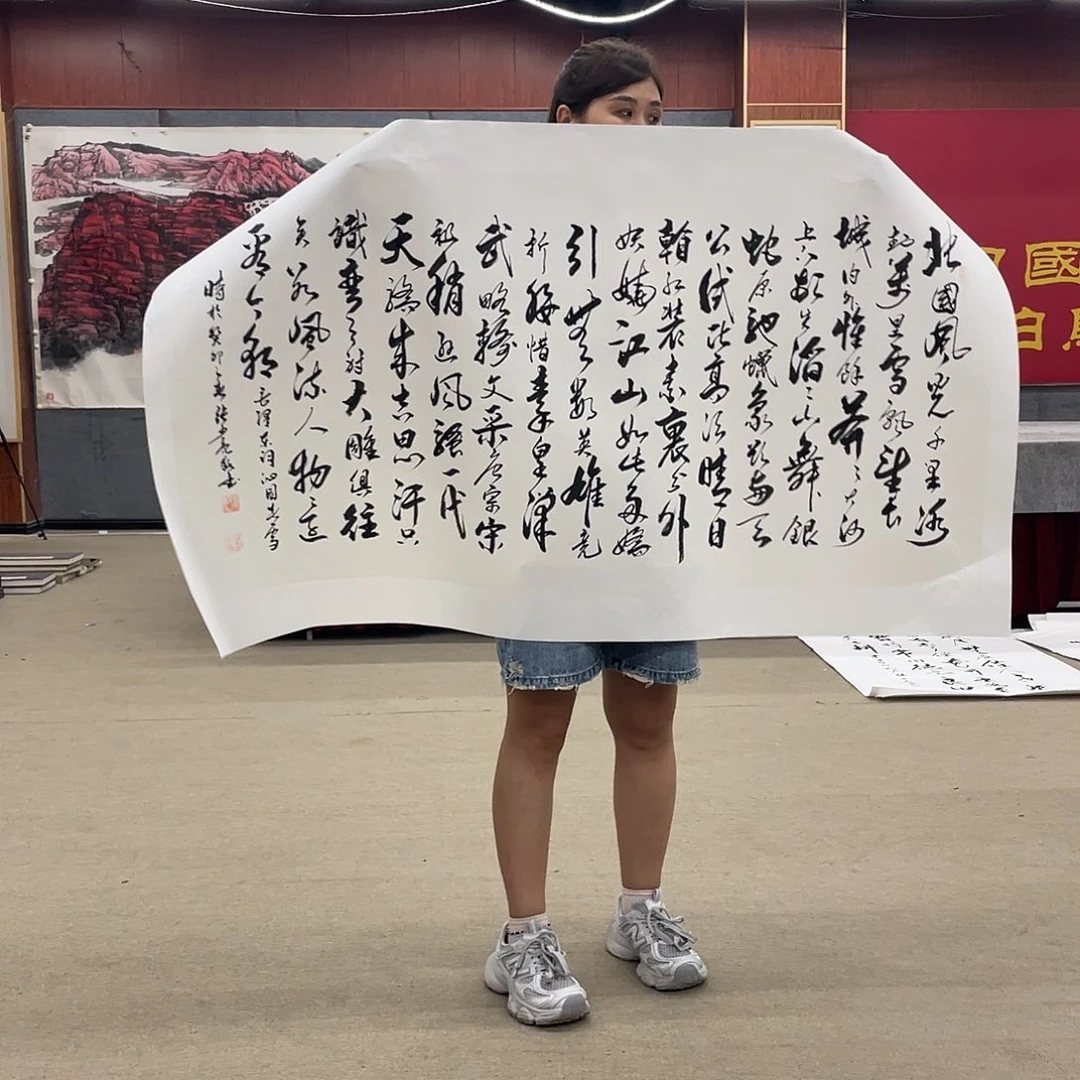 北國風光千里冰
封萬里雪飄望長
城内外惟餘莽々大河
上下頓失滔々山舞銀
蛇原馳蠟象欲與天
公試比高須晴日
看紅裝素裹分外
妖嬈江山如此多嬌
引無數英雄競
折腰惜秦皇漢
武略輸文采唐宗宋
祖稍遜風騷一代
天驕成吉思汗只
識彎弓射大雕俱往
矣数風流人物還
看今朝
毛澤東詞沁園春雪
時於癸卯
國